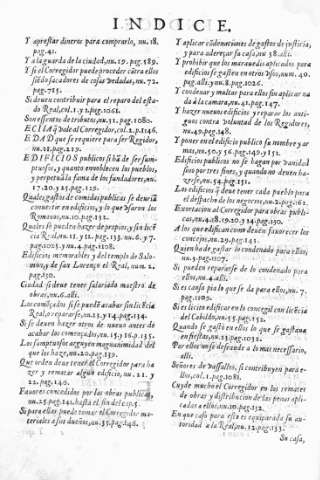 INDICE.
Y aprestar dineros para comprarlo, nu. 18.
pag. 41.
Y a la guarda de la ciudad, nu. 29. pag. 289.
Y si el Corregidor puede proceder contra ellos
si sõ sacadores de cosas vedadas, nu. 72.
pag. 715.
Si deuen contribuir para el reparo del esta-
do Real, col. 1. y 2. pag. 1061.
Son essentos de tributos, nu. 51. pag. 1080.
ECIIA qual el Corregidor, col. 2. p. 1146.
EDAD que se requiere para ser Regidor,
nu. 21. pag. 212.
EDIFICIOS publicos si hã de ser sum-
ptuosos, y quanto ennoblecen los pueblos,
y perpetuã la fama de sus fundadores, nu.
17. 20. y 25. pag. 129.
Quales gastos de comidas publicas se deuriã
conuertir en edificios, y lo que vsaron los
Romanos, nu. 10. pag. 132.
Quales se puedẽ hazer de propios y sin licẽ
cia Real, nu. 51. y 52. pag. 153. nu. 6. y 7.
pag. 1025. y nu. 4. pag. 1028.
Edificios memorables y del templo de Salo-
mon, y de san Lorenço el Real, num. 2.
pag. 150.
Ciudad si deue tener salariado maestro de
obras, nu. 6. alli.
Los comẽçados si se puedẽ acabar sin licẽcia
Real, o repararse, nu. 13. y 14. pag. 134.
Si se deuen hazer otros de nueuo antes de
acabar los comẽçados, nu. 15. y 16. p. 135.
Los sumptuosos arguyen magnanimidad del
que los haze, nu. 20. pag. 139.
Que orden deue tener el Corregidor para ha
zer y rematar algun edificio, nu. 21. y
22. pag. 140.
Fauores concedidos por las obras publicas,
nu. 25. pag. 142. hasta el fin del c. 5.
Si para ellas puede tomar el Corregidor ma-
teriales a sus dueños, nu. 35. pag. 148.
Y aplicar cõdenaciones de gastos de justicia,
y para aderezar su casa, nu. 38. alli.
Y prohibir que los marauedis aplicados para
edificios se gasten en otros vsos, num. 40.
pag. alli, y nu. 8. pag. 1026.
Y condenar y multar para ellos sin aplicar na
da a la camara, nu. 41. pag. 147.
Y hazer nueuos edificios y reparar los anti-
guos contra voluntad de los Regidores,
nu. 49. pag. 148.
Y poner en el edificio publico su nombre y ar
mas, nu. 50. y 56. pag. 149. y 151.
Edificios publicos no se hagan por vanidad
sino por tres fines, y quando no deuen ha-
zerse, nu. 54. pag. 151.
Los edificios q̃ deue tener cada pueblo para
el despacho de los negocios, nu. 2. pag. 162.
Exortacion al Corregidor para obras publi-
cas, nu. 4. 18. 19. 20. y 24. pag. 130.
A los que edifican como deuẽ fauorecer los
concejos, nu. 29. pag. 143.
Quien ha de gastar lo condenado para ellos,
nu. 5. pag. 1117.
Si pueden repararse de lo condenado para
ellos, nu. 4. alli.
Si es causa pia lo que se da para ellos, nu. 7.
pag. 1103.
Si es licito edificar en lo concegil con licẽcia
del Cabildo, nu. 25. pag. 152.
Quando se gastò en ellos lo que se gastaua
en fiestas, nu. 23. pag. 1032.
Por ellos no se defiende a lo mas necessario,
alli.
Señores de vassallos, si contribuyen para e-
llos, col. 1. pag. 1081.
Cuyde mucho el Corregidor en los remates
de obras y distribucion de las penas aplica-
cadas a ellos, nu. 10. pag. 132.
En que casos para esto es equiparada su au-
toridad a la Real, nu. 12. pag. 133.
Su casa,